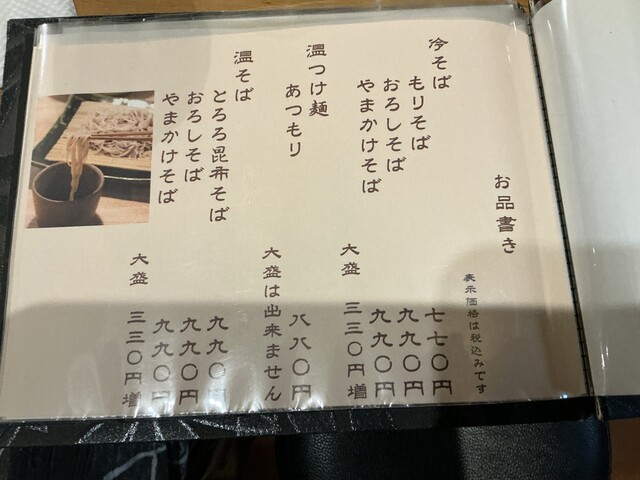 お品書き
表示価格は税込みです
冷そば
もりそば 七七〇円
おろしそば 九九〇円
やまかけそば 九九〇円
大盛 三三〇円増
温つけ麺
あつもり 八八〇円
大盛は出来ません
温そば
とろろ昆布そば 九九〇円
おろしそば 九九〇円
やまかけそば 九九〇円
大盛 三三〇円増